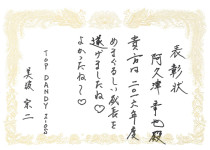 表彰状
阿久津 幸也殿
貴方は二〇一六年度
めまぐるしい成長を
遂げましたね♡
よかったね〜♡
TOP DANDY